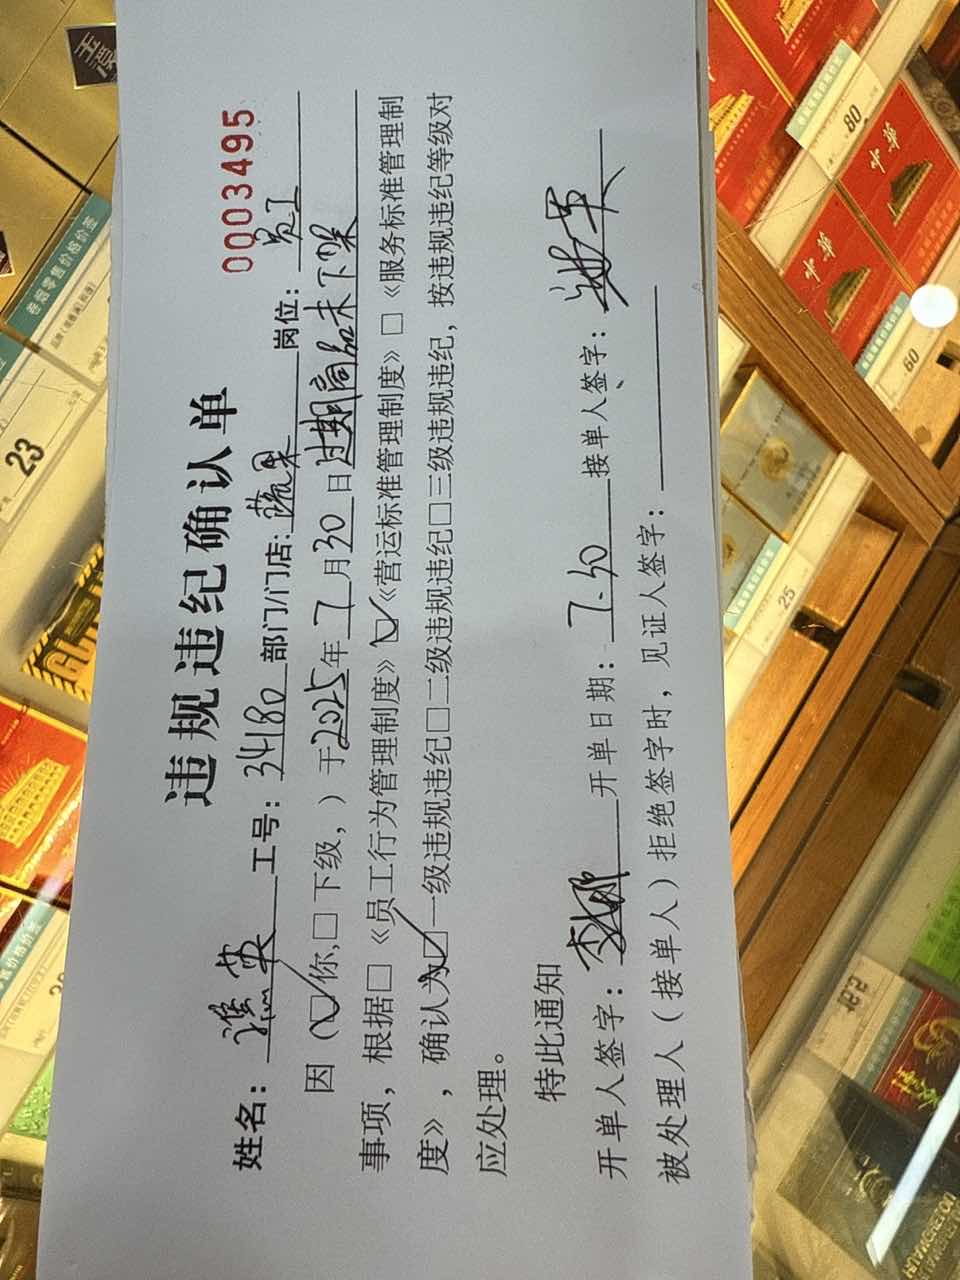 0003495
违规违纪确认单
姓名：谯英 工号：34180 部门/门店：蔬果 岗位：员工
因（☑你，□下级，）于2025年7月30日过期商品未下架
事项，根据□《员工行为管理制度》☑《营运标准管理制度》□《服务标准管理制
度》，确认为☑一级违规违纪□二级违规违纪□三级违规违纪，按违规违纪等级对
应处理。
特此通知
开单人签字： 开单日期：7.30 接单人签字：
被处理人（接单人）拒绝签字时，见证人签字：
卷烟零售价格价签
23
80
60
25
中华
中华